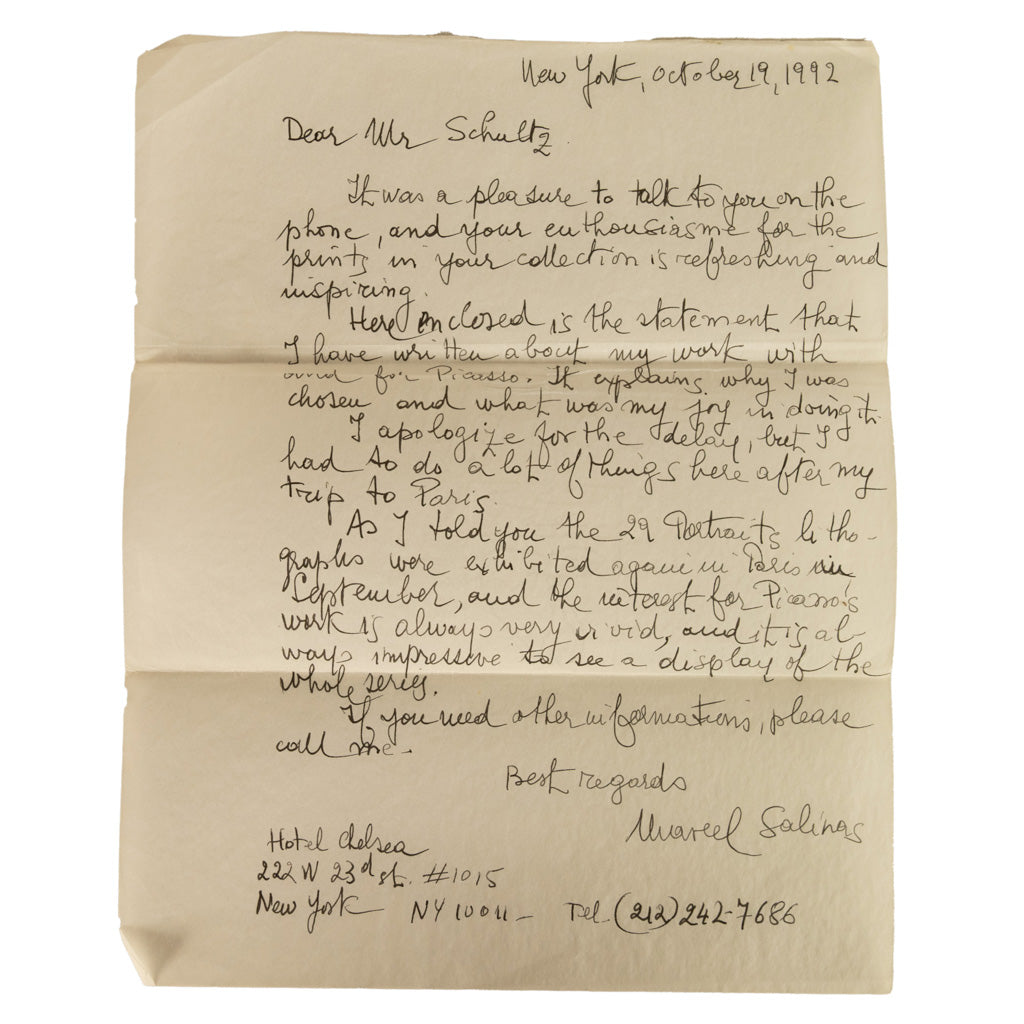 New York, October 19, 1992
Dear Mr Schultz.
It was a pleasure to talk to you on the
phone, and your enthousiasme for the
prints in your collection is refreshing and
inspiring.
Here enclosed is the statement that
I have written about my work with
and for Picasso. It explains why I was
chosen and what was my joy in doing it.
I apologize for the delay, but I
had to do a lot of things here after my
trip to Paris.
As I told you the 29 Portraits litho-
graphs were exhibited again in Paris in
September, and the interest for Picasso's
work is always very vivid, and it is al-
ways impressive to see a display of the
whole series.
If you need other informations, please
call me -
Best regards
Marcel Salinas
Hotel Chelsea
222 W 23rd st. #1015
New York NY 10011 - Tel (212) 242-7686